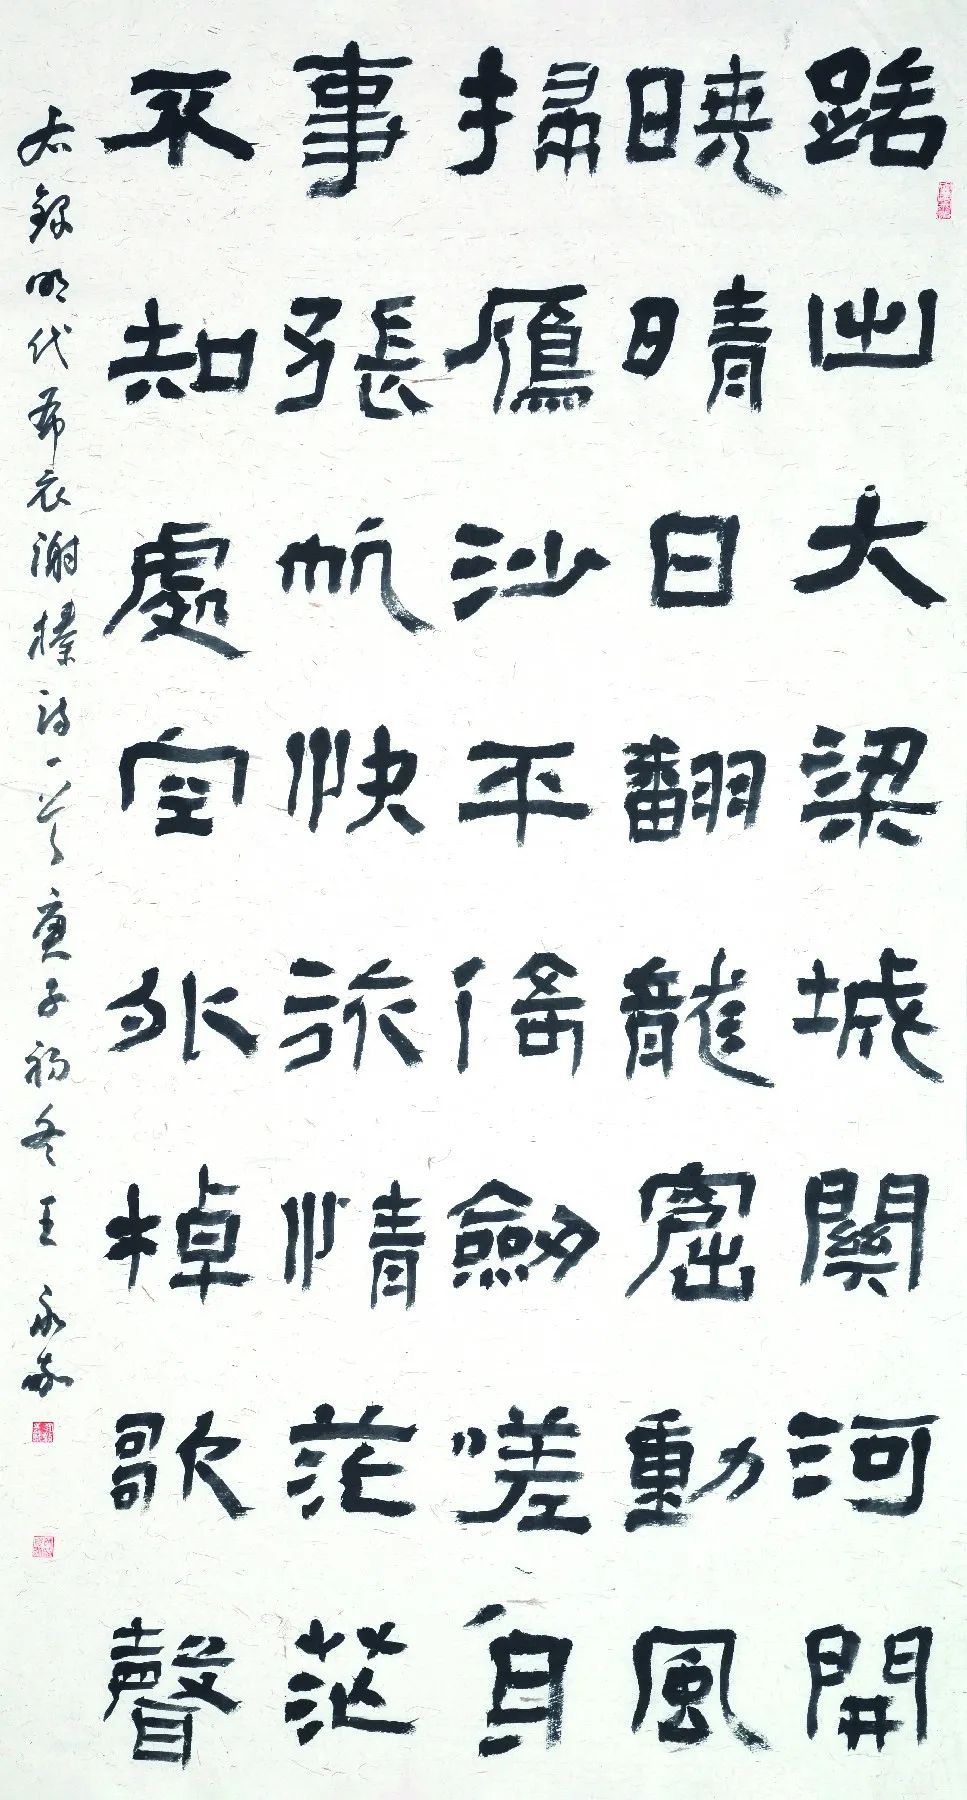 路出大梁城關河開
曉晴日翻龍窟動風
掃雁沙平倚劍嗟自
事張帆快旅情茫茫
不知處空外棹歌聲
右錄明代布衣謝榛詩一首庚子初冬王永